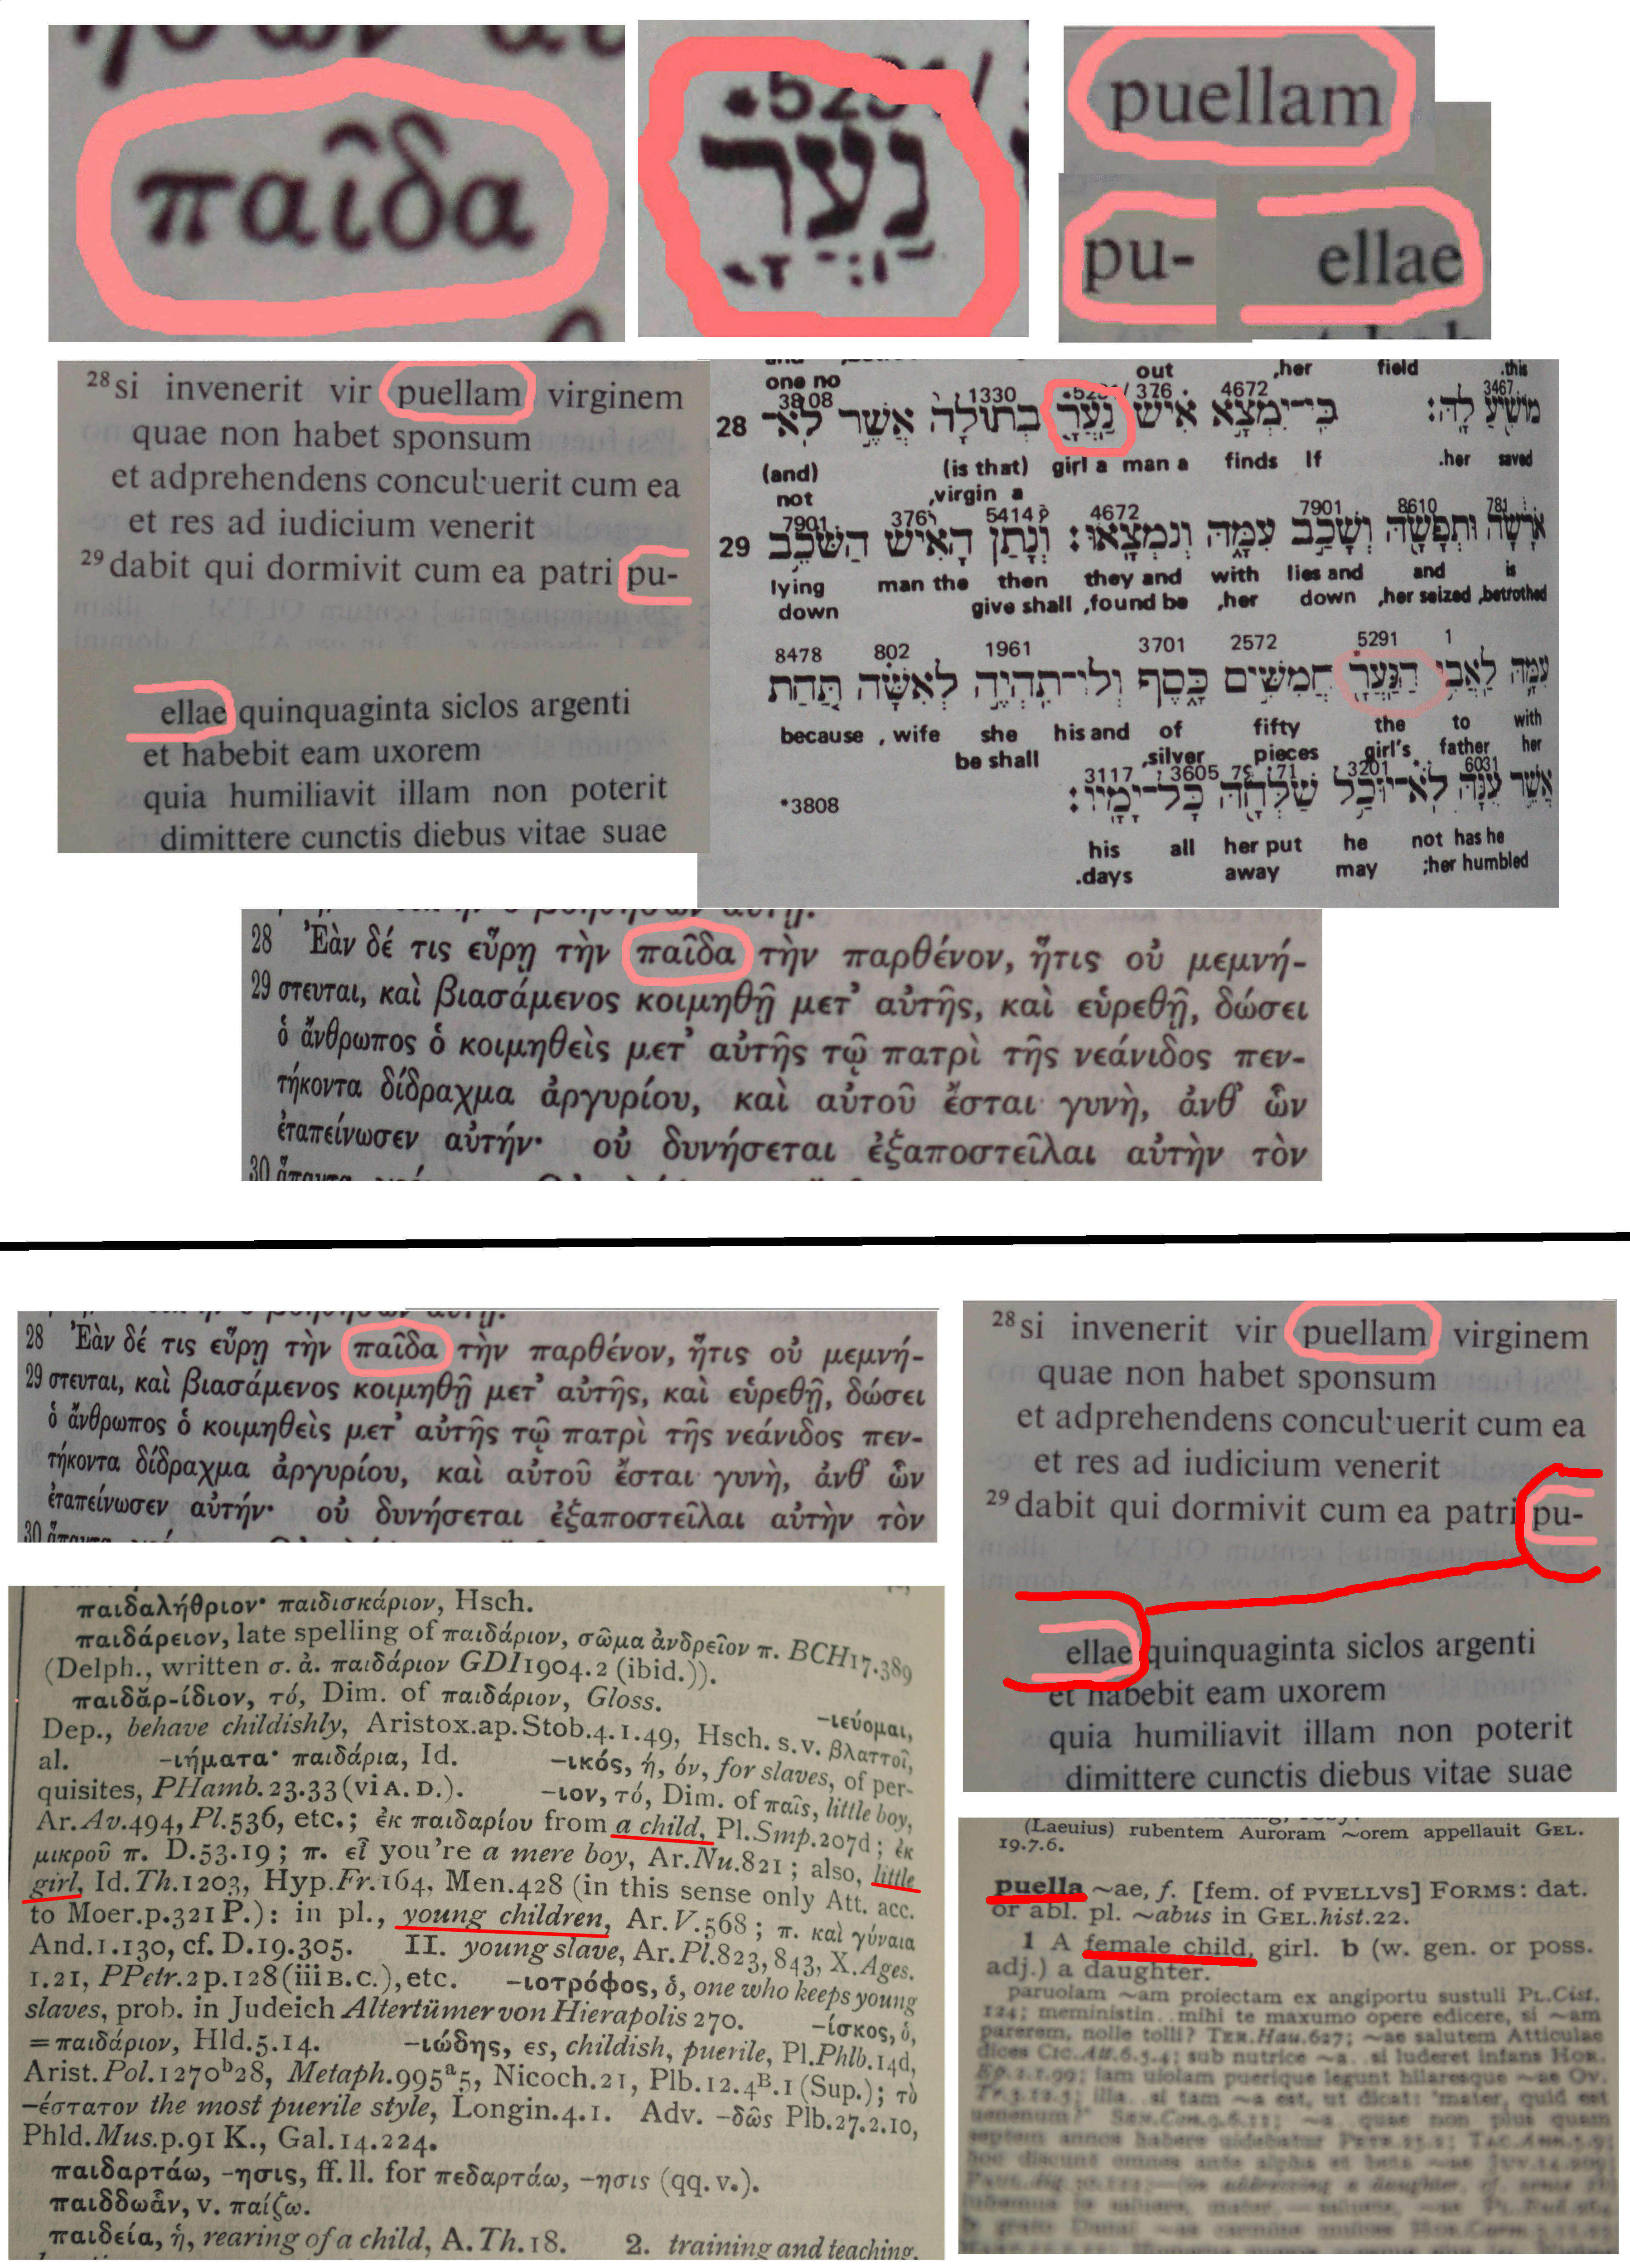 παῖδα
נער
puellam
pu- ellae
28 si invenerit vir puellam virginem
quae non habet sponsum
et adprehendens concubuerit cum ea
et res ad iudicium venerit
29 dabit qui dormivit cum ea patri pu-
ellae quinquaginta siclos argenti
et habebit eam uxorem
quia humiliavit illam non poterit
dimittere cunctis diebus vitae suae
one no out ,her field .this
3808 1330 376 4672 3467
28 מוֹשִׁיעַ לָהּ: כִּי־יִמְצָא אִישׁ נַעֲרָ בְתוּלָה אֲשֶׁר לֹא־
(and) (is that) girl a man a finds If .her saved
not ,virgin a
7901 376 5414 4672 7901 8610 781
29 אֹרָשָׂה וּתְפָשָׂהּ וְשָׁכַב עִמָּהּ וְנִמְצָאוּ: וְנָתַן הָאִישׁ הַשֹּׁכֵב
lying man the then they and with lies and and is
down give shall ,found be ,her down ,her seized ,betrothed
8478 802 1961 3701 2572 5291 1
עִמָּהּ לַאֲבִי הַנַּעֲרָ חֲמִשִּׁים כָּסֶף וְלוֹ־תִהְיֶה לְאִשָּׁה תַּחַת
because , wife she his and of fifty the to with
be shall ,silver pieces girl's father her
3117 3605 7971 3201 6031
*3808 אֲשֶׁר עִנָּהּ לֹא־יוּכַל שַׁלְּחָהּ כָּל־יָמָיו:
his all her put he not has he
.days away may ;her humbled
28 Ἐὰν δέ τις εὕρῃ τὴν παῖδα τὴν παρθένον, ἥτις οὐ μεμνή-
29 στευται, καὶ βιασάμενος κοιμηθῇ μετ' αὐτῆς, καὶ εὑρεθῇ, δώσει
ὁ ἄνθρωπος ὁ κοιμηθεὶς μετ' αὐτῆς τῷ πατρὶ τῆς νεάνιδος πεν-
τήκοντα δίδραχμα ἀργυρίου, καὶ αὐτοῦ ἔσται γυνὴ, ἀνθ' ὧν
ἐταπείνωσεν αὐτήν· οὐ δυνήσεται ἐξαποστεῖλαι αὐτὴν τὸν
30
28 Ἐὰν δέ τις εὕρῃ τὴν παῖδα τὴν παρθένον, ἥτις οὐ μεμνή-
29 στευται, καὶ βιασάμενος κοιμηθῇ μετ' αὐτῆς, καὶ εὑρεθῇ, δώσει
ὁ ἄνθρωπος ὁ κοιμηθεὶς μετ' αὐτῆς τῷ πατρὶ τῆς νεάνιδος πεν-
τήκοντα δίδραχμα ἀργυρίου, καὶ αὐτοῦ ἔσται γυνὴ, ἀνθ' ὧν
ἐταπείνωσεν αὐτήν· οὐ δυνήσεται ἐξαποστεῖλαι αὐτὴν τὸν
30
παιδαλήθριον· παιδισκάριον, Hsch.
παιδάρειον, late spelling of παιδάριον, σῶμα ἀνδρεῖον π. BCH17.389
(Delph., written σ. ἀ. παιδάριον GDI1904.2 (ibid.)).
παιδᾰρ-ίδιον, τό, Dim. of παιδάριον, Gloss. -ιεύομαι,
Dep., behave childishly, Aristox.ap.Stob.4.1.49, Hsch. s.v. βλαττοῖ,
al. -ιήματα· παιδάρια, Id. -ικός, ή, όν, for slaves, of per-
quisites, PHamb.23.33 (vi A.D.). -ιον, τό, Dim. of παῖς, little boy,
Ar.Av.494, Pl.536, etc.; ἐκ παιδαρίου from a child, Pl.Smp.207d; ἐκ
μικροῦ π. D.53.19; π. εἶ you're a mere boy, Ar.Nu.821; also, little
girl, Id.Th.1203, Hyp.Fr.164, Men.428 (in this sense only Att. acc.
to Moer.p.321 P.): in pl., young children, Ar.V.568; π. καὶ γύναια
And.1.130, cf. D.19.305. II. young slave, Ar.Pl.823, 843, X.Ages.
1.21, PPetr.2p.128 (iii B.C.), etc. -ιοτρόφος, ὁ, one who keeps young
slaves, prob. in Judeich Altertümer von Hierapolis 270. -ίσκος, ὁ,
=παιδάριον, Hld.5.14. -ιώδης, ες, childish, puerile, Pl.Phlb.14d,
Arist.Pol.1270b28, Metaph.995a5, Nicoch.21, Plb.12.4B.1 (Sup.); τὸ
-έστατον the most puerile style, Longin.4.1. Adv. -δῶς Plb.27.2.10,
Phld.Mus.p.91 K., Gal.14.224.
παιδαρτάω, -ησις, ff. ll. for πεδαρτάω, -ησις (qq. v.).
παιδδωἅν, v. παίζω.
παιδεία, ἡ, rearing of a child, A.Th.18. 2. training and teaching,
28 si invenerit vir puellam virginem
quae non habet sponsum
et adprehendens concubuerit cum ea
et res ad iudicium venerit
29 dabit qui dormivit cum ea patri pu-
ellae quinquaginta siclos argenti
et habebit eam uxorem
quia humiliavit illam non poterit
dimittere cunctis diebus vitae suae
(Laeuius) rubentem Auroram ~orem appellauit GEL.
19.7.6.
puella ~ae, f. [fem. of PVELLVS] FORMS: dat.
or abl. pl. ~abus in GEL.hist.22.
1 A female child, girl. b (w. gen. or poss.
adj.) a daughter.
paruolam ~am proiectam ex angiportu sustuli PL.Cist.
124; meministin.. mihi te maxumo opere edicere, si ~am
parerem, nolle tolli? TER.Hau.627; ~ae salutem Atticulae
dices CIC.Att.6.5.4; sub nutrice ~a.. si luderet infans HOR.